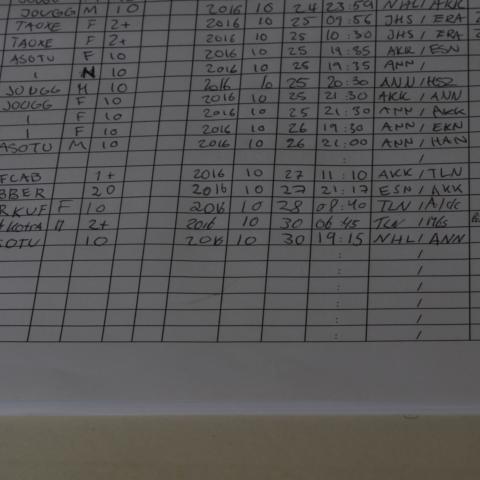 JOUGG M 10 2016 10 24 23:59 NHL/AKK
TAOXE F 2+ 2016 10 25 09:56 JHS/ERA
TAOXE F 2+ 2016 10 25 10:30 JHS/ERA
ASOTU F 10 2016 10 25 AKK/ESN
1 N 10 2016 10 25 19:35 ANN/
JOUGG M 10 2016 10 25 20:30
JOUGG F 10 2016 10 25 21:30 AKK/ANN
1 F 10 2016 10 25 21:30 ANN/AKK
1 F 10 2016 10 26 19:30 ANN/EKN
ASOTU M 10 2016 10 26 21:00 ANN/HAN
: /
FCAB 1+ 2016 10 27 11:10 AKK/TLN
BBER 20 2016 10 27 21:17 ESN/AKK
RKUF F 10 2016 10 28 08:40 TLN/
2+ 2016 10 30 06:45 TLN/
SOTU 10 2016 10 30 19:15 NHL/ANN
/
: /
: /
: /
: /
: /